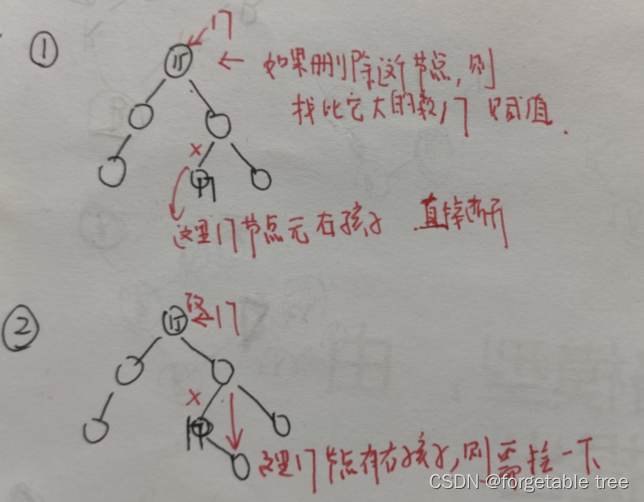 ① 15 17
← 如果删除这个节点,则
找比它大的数17 赋值.
×
17
这里17节点无右孩子 直接断开
② 15 ←17
×
17
这里17节点有右孩子,则需挂一下
CSDN @forgetable tree